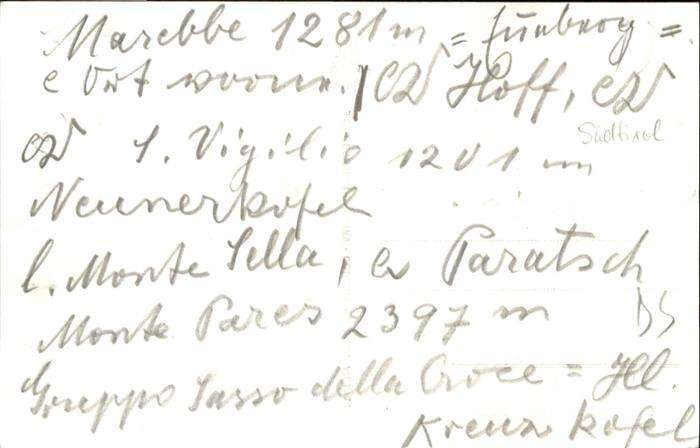 Marebbe 1281 m = Enneberg =
e Ort vorne. | CW Hoff, CW
CW S. Vigilio 1201 m
Südtirol
Neunerkofel
l. Monte Sella, Paratsch
Monte Pares 2397 m
DS
Gruppo Sasso della Croce = Hl.
Kreuzkofel